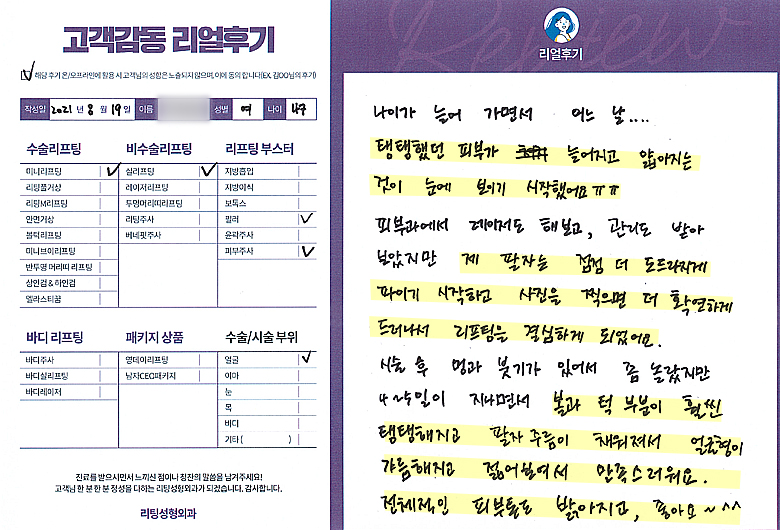 고객감동 리얼후기
해당 후기 온/오프라인에 활용 시 고객님의 성함은 노출되지 않으며, 이에 동의 합니다(EX. 김OO님의 후기)
작성일 2021 년 8 월 19 일 이름 성별 여 나이 47
수술리프팅
미니리프팅
리팅풀거상
리팅M리프팅
안면거상
볼턱리프팅
미니브이리프팅
반투명 머리띠 리프팅
상안검 & 하안검
엘라스티꿈
비수술리프팅
실리프팅
레이저리프팅
투명머리띠리프팅
리팅주사
베네핏주사
리프팅 부스터
지방흡입
지방이식
보톡스
필러
윤곽주사
피부주사
바디 리프팅
바디주사
바디실리프팅
바디레이저
패키지 상품
영데이리프팅
남자CEO패키지
수술/시술 부위
얼굴
이마
눈
목
바디
기타 ( )
진료를 받으시면서 느끼신 점이나 칭찬의 말씀을 남겨주세요!
고객님 한 분 한 분 정성을 다하는 리팅성형외과가 되겠습니다. 감사합니다.
리팅성형외과
Review
리얼후기
나이가 늘어 가면서 어느 날....
탱탱했던 피부가 늘어지고 얇아지는
것이 눈에 보이기 시작했어요 ㅠㅠ
피부과에서 레이저도 해보고, 관리도 받아
보았지만 제 팔자는 점점 더 도드라지게
파이기 시작하고 사진을 찍으면 더 확연하게
드러나서 리프팅을 결심하게 되었어요.
시술 후 멍과 붓기가 있어서 좀 놀랐지만
4~5일이 지나면서 볼과 턱 부분이 훨씬
탱탱해지고 팔자 주름이 채워져서 얼굴형이
갸름해지고 젊어보여서 만족스러워요.
전체적인 피부톤도 밝아지고, 좋아요 ~^^